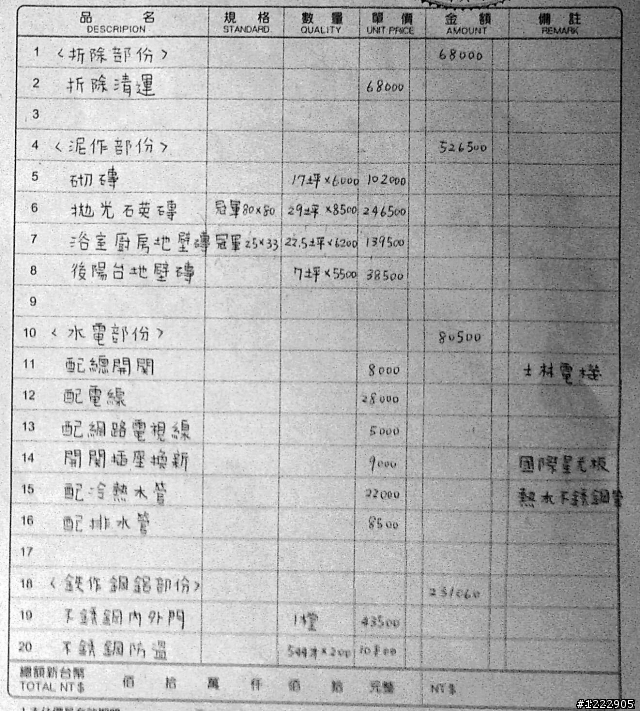 品名 規格 數量 單價 金額 備註
DESCRIPION STANDARD. QUALITY UNIT PRICE AMOUNT REMARK
1 〈拆除部份〉 68000
2 拆除清運 68000
3
4 〈泥作部份〉 526500
5 砌磚 17坪×6000 102000
6 拋光石英磚 冠軍80×80 29坪×8500 246500
7 浴室廚房地壁磚 冠軍25×33 22.5坪×6200 139500
8 後陽台地壁磚 7坪×5500 38500
9
10 〈水電部份〉 80500
11 配總開關 8000 士林電機
12 配電線 28000
13 配網路電視線 5000
14 開關插座換新 9000 國際星光板
15 配冷熱水管 22000 熱水不銹鋼管
16 配排水管 8500
17
18 〈鉄作鋼鋁部份〉 231060
19 不銹鋼內外門 1樘 43500
20 不銹鋼防 544才×200
總額新台幣
TOTAL NT$ 佰 拾 萬 仟 佰 拾 元整 NT$
#1222905